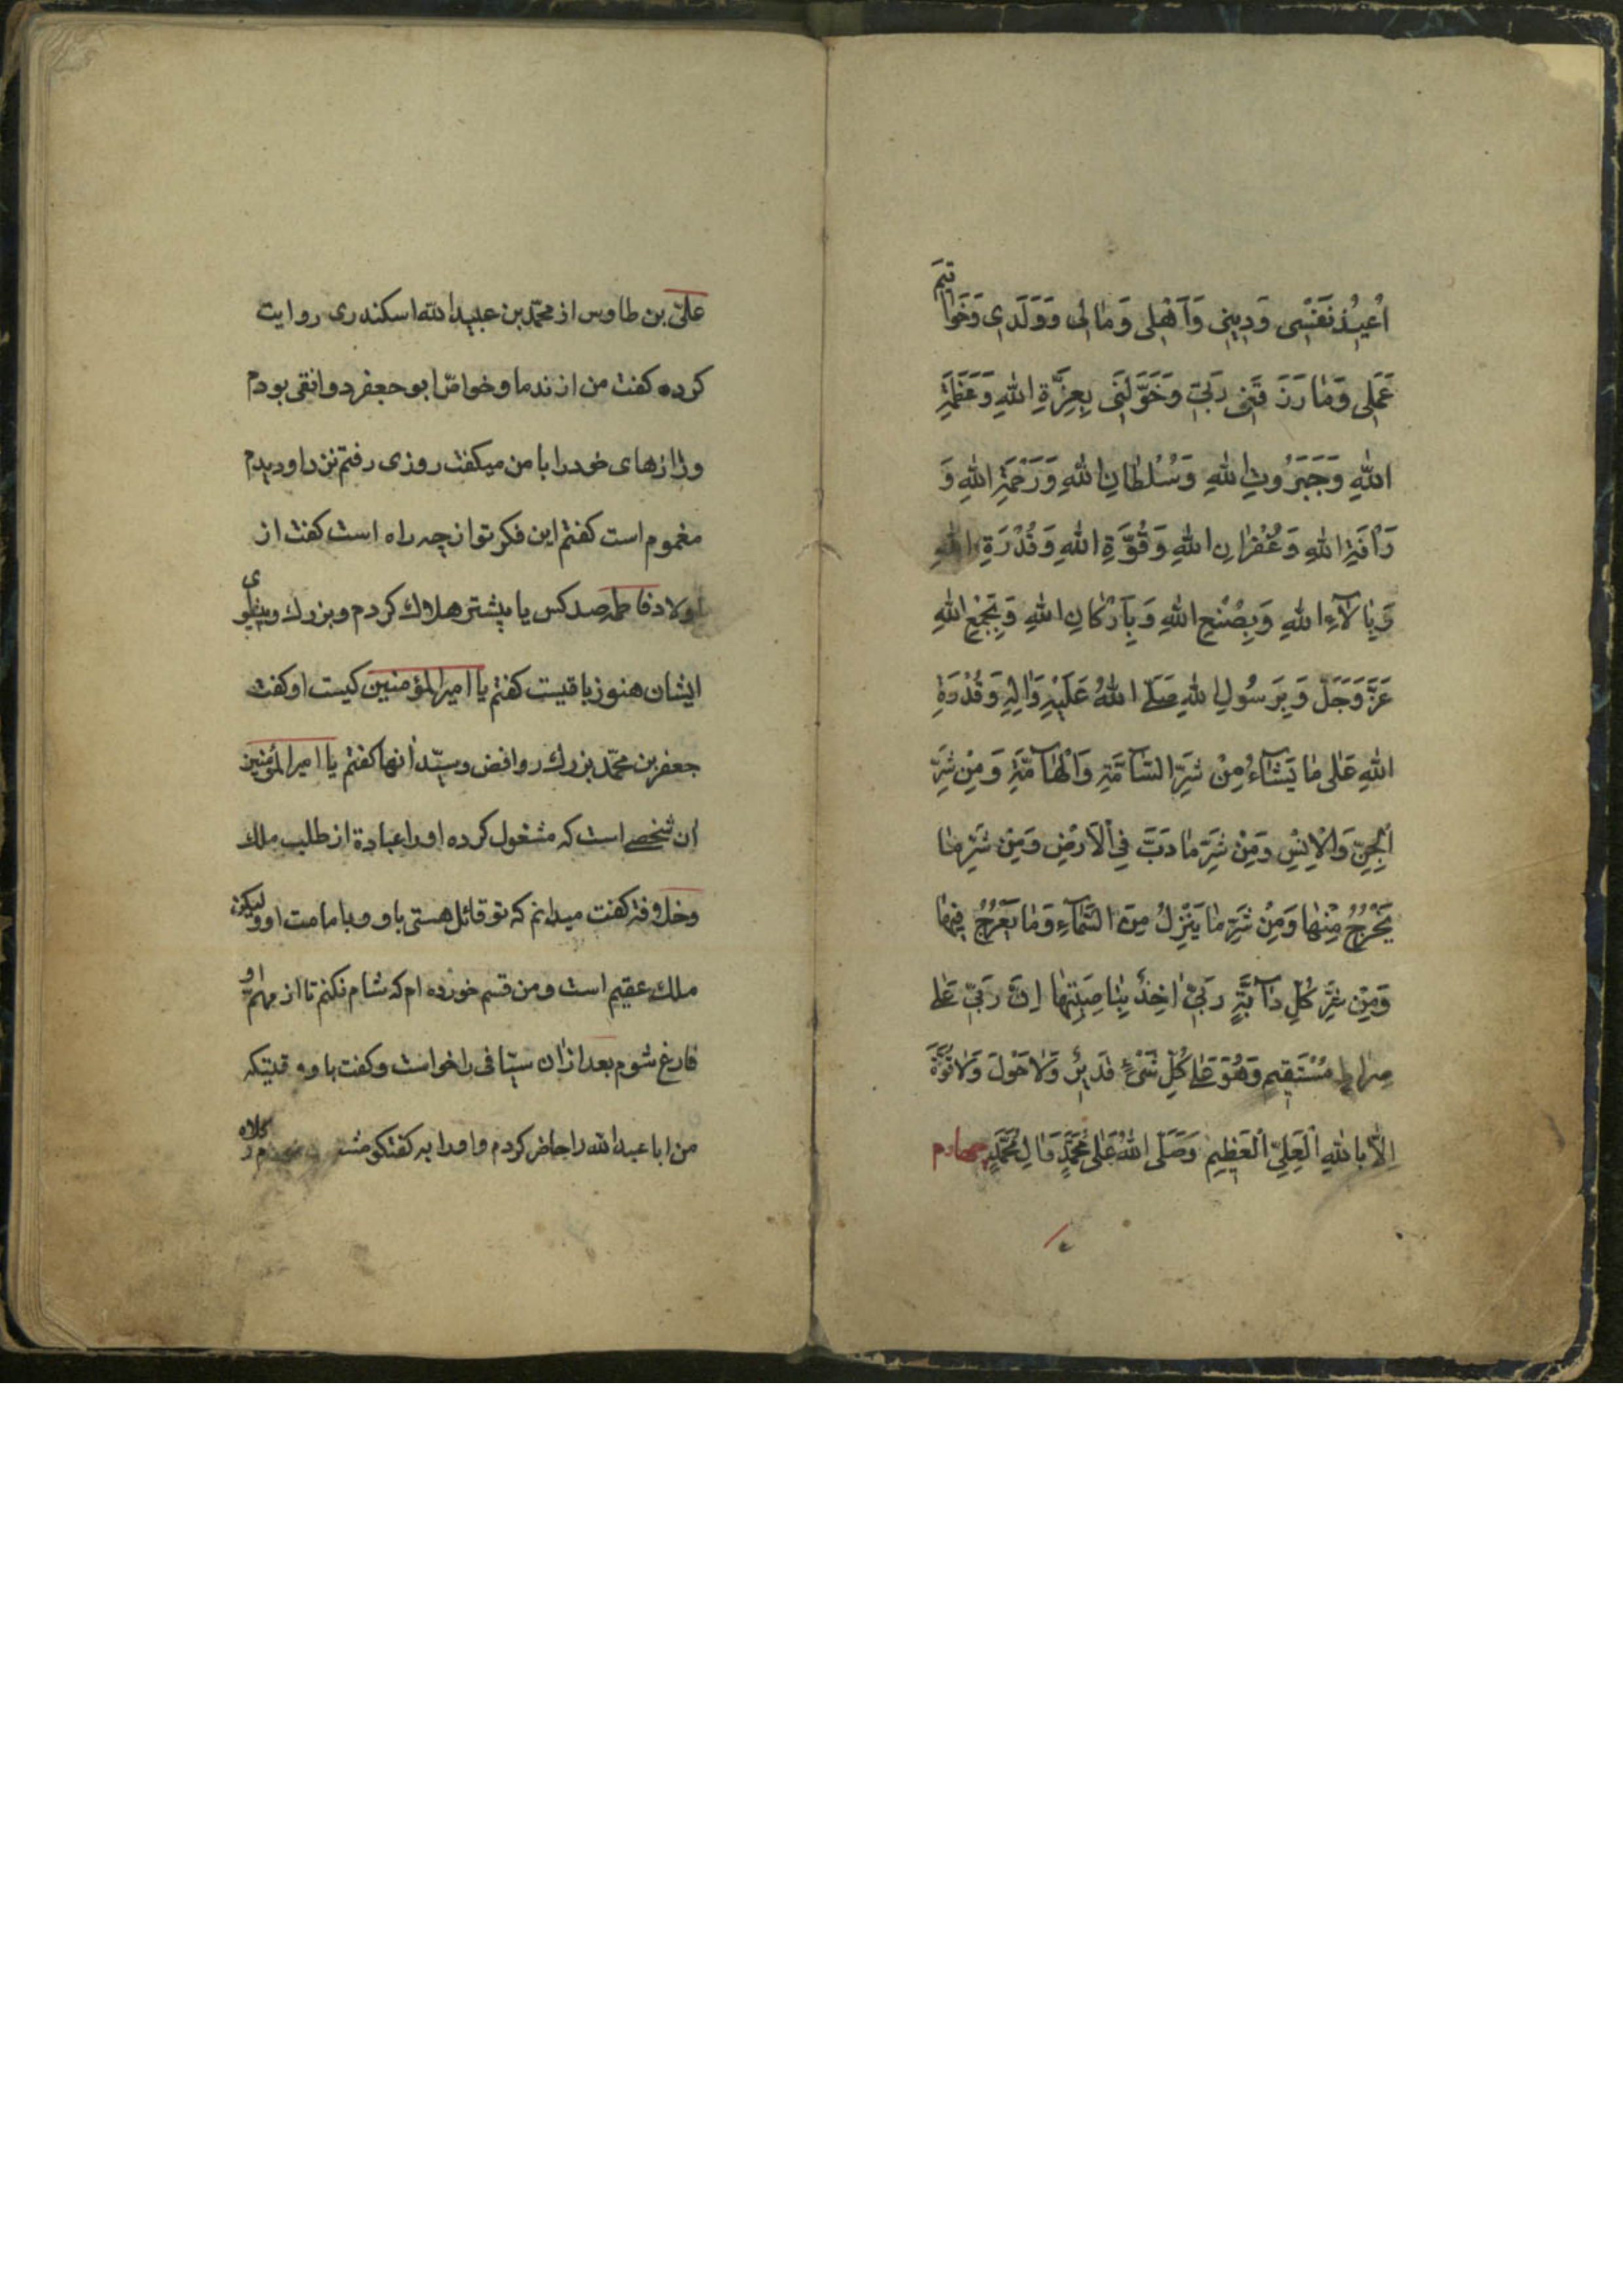 اُعِيذُ نَفْسِی وَدِينِی وَاَهْلِی وَمٰالِی وَوَلَدِی وَخَوٰاتِيمَ
عَمَلِی وَمٰا رَزَقَنِی رَبِّی وَخَوَّلَنِی بِعِزَّةِ اللّٰهِ وَعَظَمَةِ
اللّٰهِ وَجَبَرُوتِ اللّٰهِ وَسُلْطٰانِ اللّٰهِ وَرَحْمَةِ اللّٰهِ وَ
رَأْفَةِ اللّٰهِ وَغُفْرٰانِ اللّٰهِ وَقُوَّةِ اللّٰهِ وَقُدْرَةِ اللّٰهِ
وَبِاٰلآءِ اللّٰهِ وَبِصُنْعِ اللّٰهِ وَبِاَرْكٰانِ اللّٰهِ وَبِجَمْعِ اللّٰهِ
عَزَّ وَجَلَّ وَبِرَسُولِ اللّٰهِ صَلَّى اللّٰهُ عَلَيْهِ وَاٰلِهِ وَقُدْرَةِ
اللّٰهِ عَلٰى مٰا يَشٰآءُ مِنْ شَرِّ السّٰآمَّةِ وَالْهٰآمَّةِ وَمِنْ شَرِّ
الْجِنِّ وَالْاِنْسِ وَمِنْ شَرِّ مٰا دَبَّ فِی الْاَرْضِ وَمِنْ شَرِّ مٰا
يَخْرُجُ مِنْهٰا وَمِنْ شَرِّ مٰا يَنْزِلُ مِنَ السَّمٰآءِ وَمٰا يَعْرُجُ فِيهٰا
وَمِنْ شَرِّ كُلِّ دٰآبَّةٍ رَبِّی اٰخِذٌ بِنٰاصِيَتِهٰا اِنَّ رَبِّی عَلٰى
صِرٰاطٍ مُسْتَقِيمٍ وَهُوَ عَلٰى كُلِّ شَیْءٍ قَدِيرٌ وَلٰا حَوْلَ وَلٰا قُوَّةَ
اِلّٰا بِاللّٰهِ الْعَلِیِّ الْعَظِيمِ وَصَلَّى اللّٰهُ عَلٰى مُحَمَّدٍ وَاٰلِ مُحَمَّدٍ چهارم
علی بن طاوس از محمّد بن عبیدالله اسکندری روایت
کرده کفت من از ندما و خواصّ ابو جعفر دوانقی بودم
ورازهای خود را با من میکفت روزی رفتم نزد او دیدم
مغموم است کفتم این فکر تو از چه راه است کفت از
اولاد فاطمه صد کس یا بیشتر هلاك کردم و بزرك و پیشوای
ایشان هنوز باقیست کفتم یا امیرالمؤمنین کیست او کفت
جعفر بن محمّد بزرك روافض و سیّد آنها کفتم یا امیرالمؤمنین
آن شخصے است که مشغول کرده او را عبادة از طلب ملك
و خلافة کفت میدانم که تو قائل هستی باو و بامامت او و لیکن
ملك عقیم است و من قسم خورده ام که شام نکنم تا از مهمّ او
فارغ شوم بعد از آن سیّافی را خواست و کفت باو وقتیکه
من ابا عبدالله را حاضر کردم و او را به کفتکو کلاه